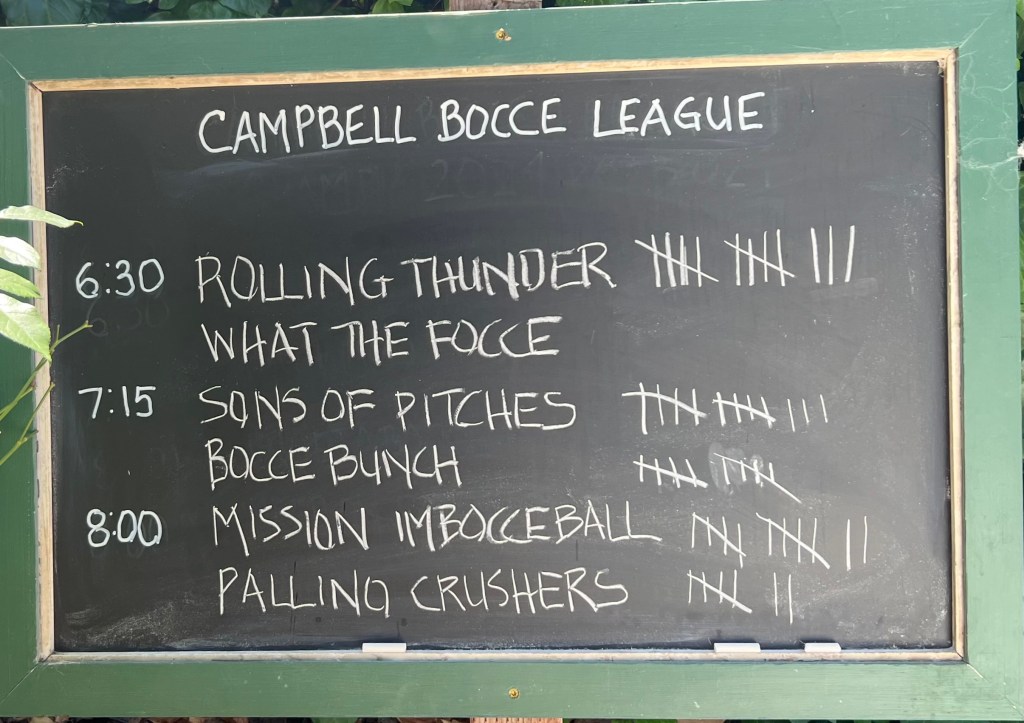 CAMPBELL BOCCE LEAGUE
6:30 ROLLING THUNDER 卌 卌 |||
WHAT THE FOCCE
7:15 SONS OF PITCHES 卌 卌 |||
BOCCE BUNCH 卌 卌
8:00 MISSION IMBOCCEBALL 卌 卌 ||
PALLING CRUSHERS 卌 ||